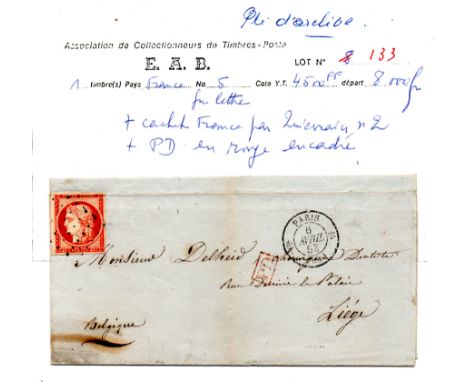 Pli d'archive.
Association de Collectionneurs de Timbres-Poste
E. A. B. LOT N° 8 133
1 timbre(s) Pays France No 5 Cote Y.T. 4500 départ 8.000 fr
sur lettre
+ cachet France par Quievrain n 2
+ PD en rouge encadré
PARIS
6
AVRIL
52
Monsieur Delheid chirurgien Dentiste
Rue le Palais
Liége
Belgique